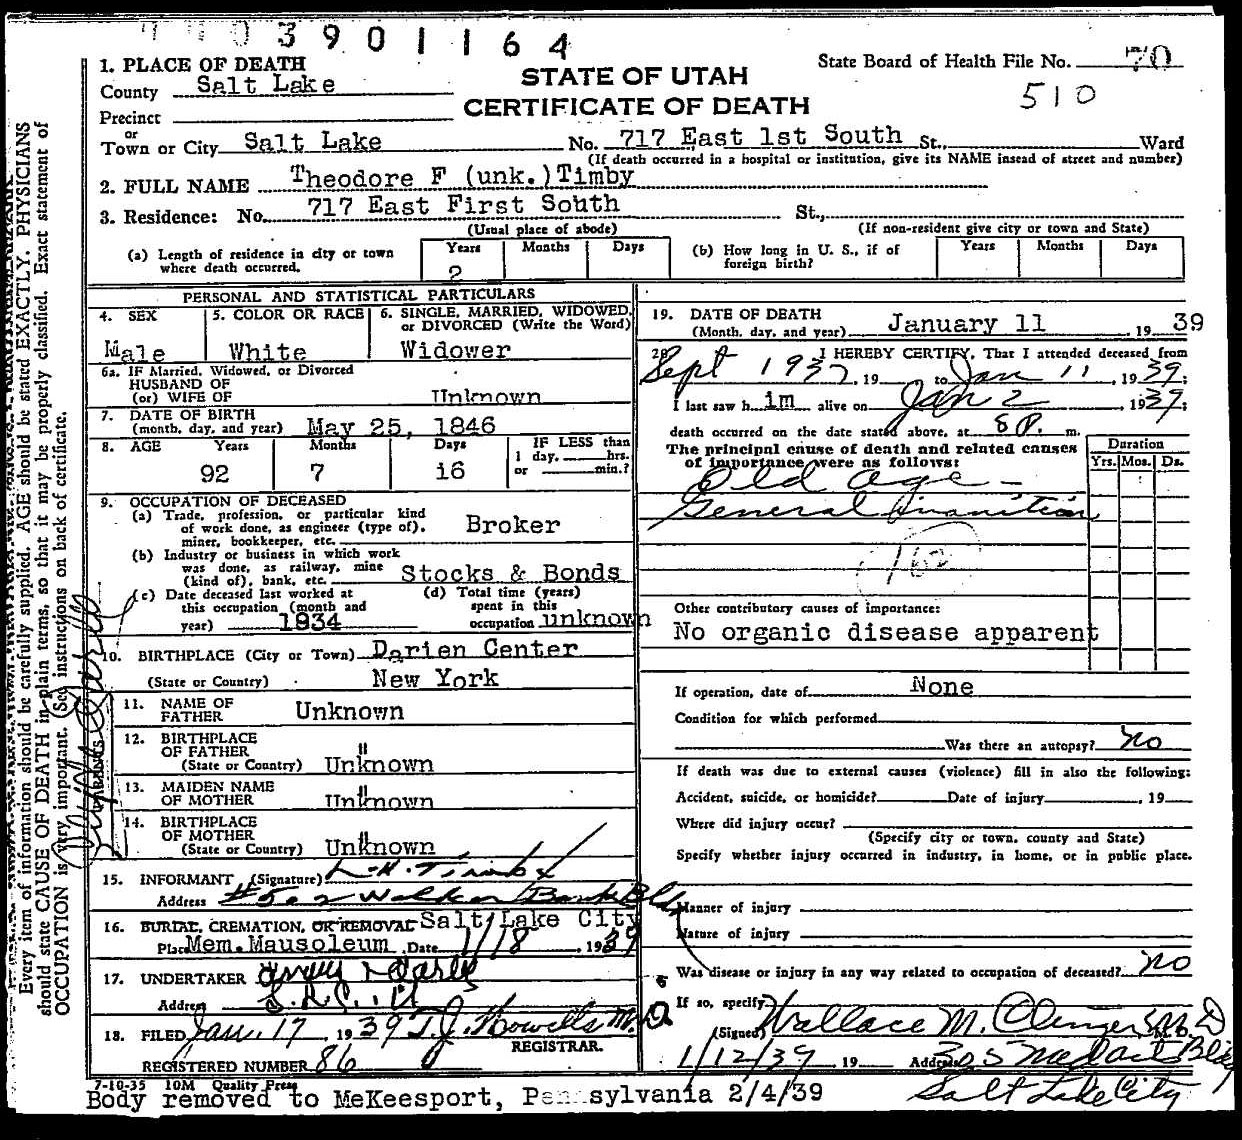 3901164
1. PLACE OF DEATH
STATE OF UTAH
State Board of Health File No. 70
County Salt Lake
CERTIFICATE OF DEATH
510
Precinct
or
Town or City Salt Lake No. 717 East 1st South St., Ward
(If death occurred in a hospital or institution, give its NAME insead of street and number)
2. FULL NAME Theodore F (unk.) Timby
3. Residence: No. 717 East First South St.,
(Usual place of abode) (If non-resident give city or town and State)
(a) Length of residence in city or town where death occurred. Years 2 Months Days
(b) How long in U. S., if of foreign birth? Years Months Days
PERSONAL AND STATISTICAL PARTICULARS
4. SEX 5. COLOR OR RACE 6. SINGLE, MARRIED, WIDOWED, or DIVORCED (Write the Word)
Male White Widower
6a. IF Married, Widowed, or Divorced
HUSBAND OF
(or) WIFE OF Unknown
7. DATE OF BIRTH
(month, day, and year) May 25, 1846
8. AGE Years Months Days IF LESS than
1 day, hrs.
or min.?
92 7 16
9. OCCUPATION OF DECEASED
(a) Trade, profession, or particular kind
of work done, as engineer (type of),
miner, bookkeeper, etc. Broker
(b) Industry or business in which work
was done, as railway, mine
(kind of), bank, etc. Stocks & Bonds
(c) Date deceased last worked at
this occupation (month and
year) 1934
(d) Total time (years)
spent in this
occupation unknown
10. BIRTHPLACE (City or Town) Darien Center
(State or Country) New York
11. NAME OF
FATHER Unknown
12. BIRTHPLACE
OF FATHER "
(State or Country) Unknown
13. MAIDEN NAME
OF MOTHER Unknown
14. BIRTHPLACE
OF MOTHER "
(State or Country) Unknown
15. INFORMANT (Signature) L. H. Timby
Address #502 Walker Bank Bld.
16. BURIAL, CREMATION, OR REMOVAL Salt Lake City
Place Mem. Mausoleum Date 1/18, 1939
17. UNDERTAKER
Address S.L.C., U
18. FILED Jan. 17, 1939 T.J. Howells M.D.
REGISTRAR.
REGISTERED NUMBER 86
19. DATE OF DEATH
(Month, day, and year) January 11, 1939
20. I HEREBY CERTIFY, That I attended deceased from
Sept 1937, 19 to Jan 11, 1939;
I last saw him alive on Jan 2, 1939;
death occurred on the date stated above, at 8 P. m.
The principal cause of death and related causes
of importance were as follows:
Duration
Yrs. Mos. Ds.
Old age -
General Inanition
162
Other contributory causes of importance:
No organic disease apparent
If operation, date of None
Condition for which performed
Was there an autopsy? No
If death was due to external causes (violence) fill in also the following:
Accident, suicide, or homicide? Date of injury , 19
Where did injury occur?
(Specify city or town, county and State)
Specify whether injury occurred in industry, in home, or in public place.
Manner of injury
Nature of injury
Was disease or injury in any way related to occupation of deceased? No
If so, specify
(Signed) Wallace M. Clinger M.D. M. D.
1/12/39 19 Address 305 Bldg
Salt Lake City
7-10-35 10M Quality Press
Body removed to McKeesport, Pennsylvania 2/4/39
Every item of information should be carefully supplied. AGE should be stated EXACTLY. PHYSICIANS
should state CAUSE OF DEATH in plain terms, so that it may be properly classified. Exact statement of
OCCUPATION is very important. (See instructions on back of certificate.